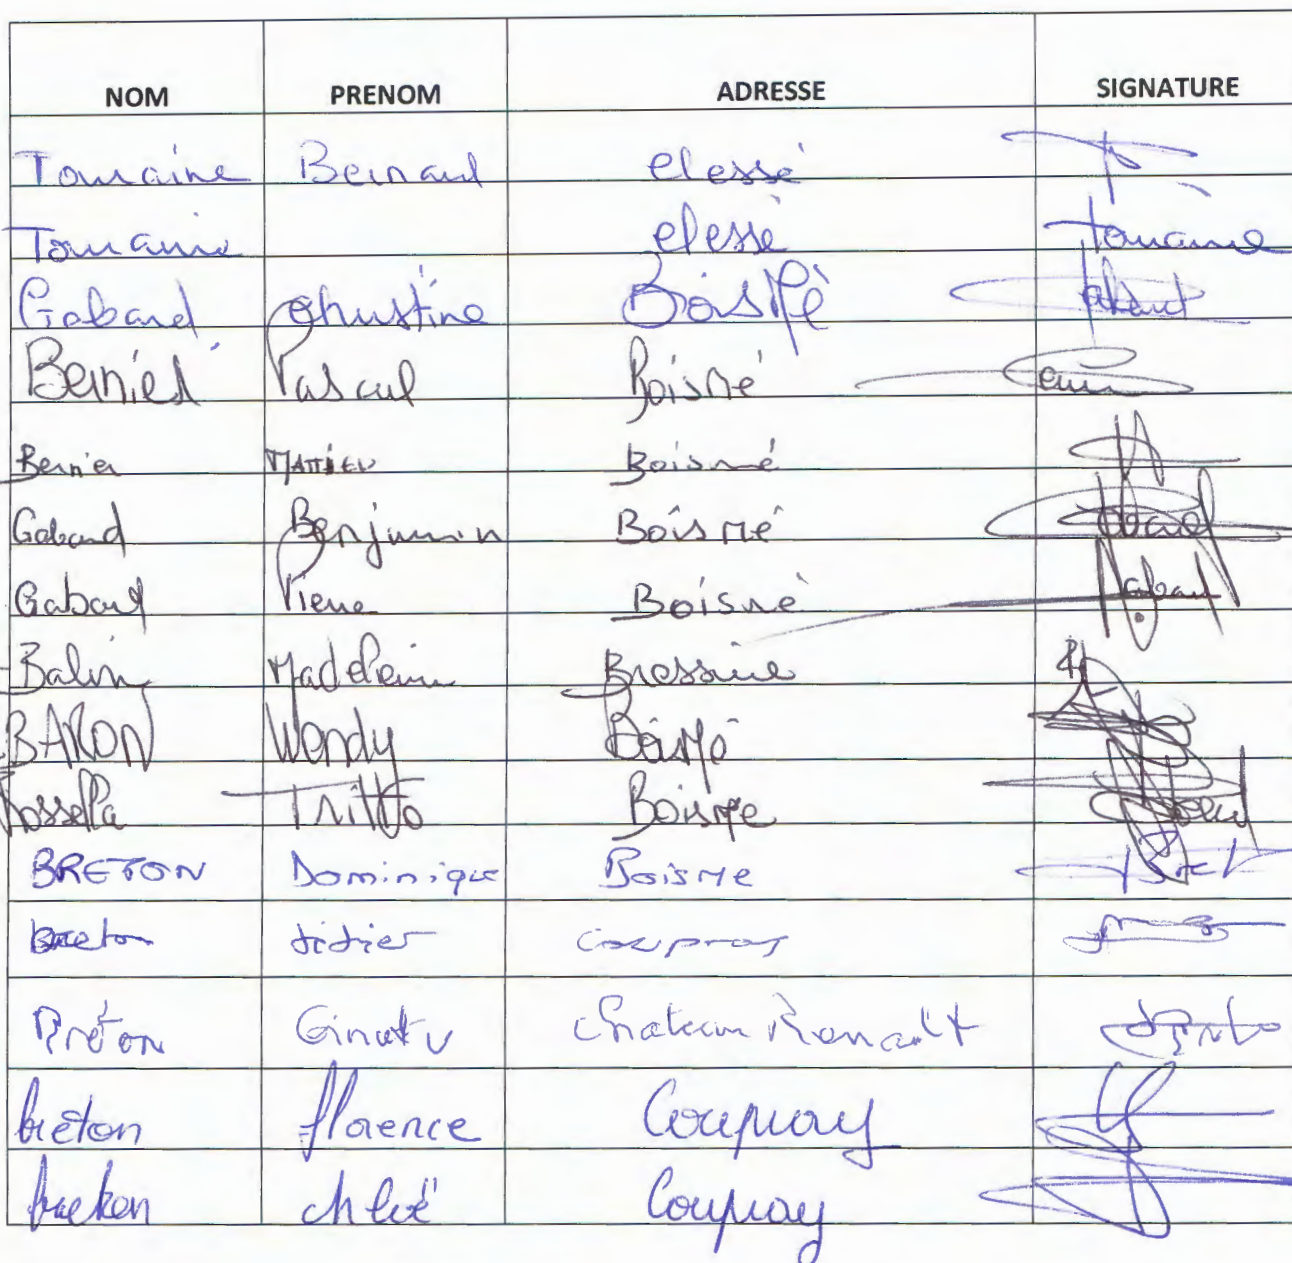 NOM PRENOM ADRESSE SIGNATURE
Touraine Bernard Clessé
Touraine Clessé Touraine
Gabard Christine BoisMé
Bernier Pascal Boismé
Bernier MATTIEU Boismé
Gabard Benjamin BoisMé
Gabard Pierre Boismé
Balin Madeleine Bressuire
BARON Wendy BoisMé
Rossella Tritto BoisMe
BRETON Dominique BoisMe
Breton didier
Breton Chateau Renault
breton florence Coupvray
breton chloë Coupvray